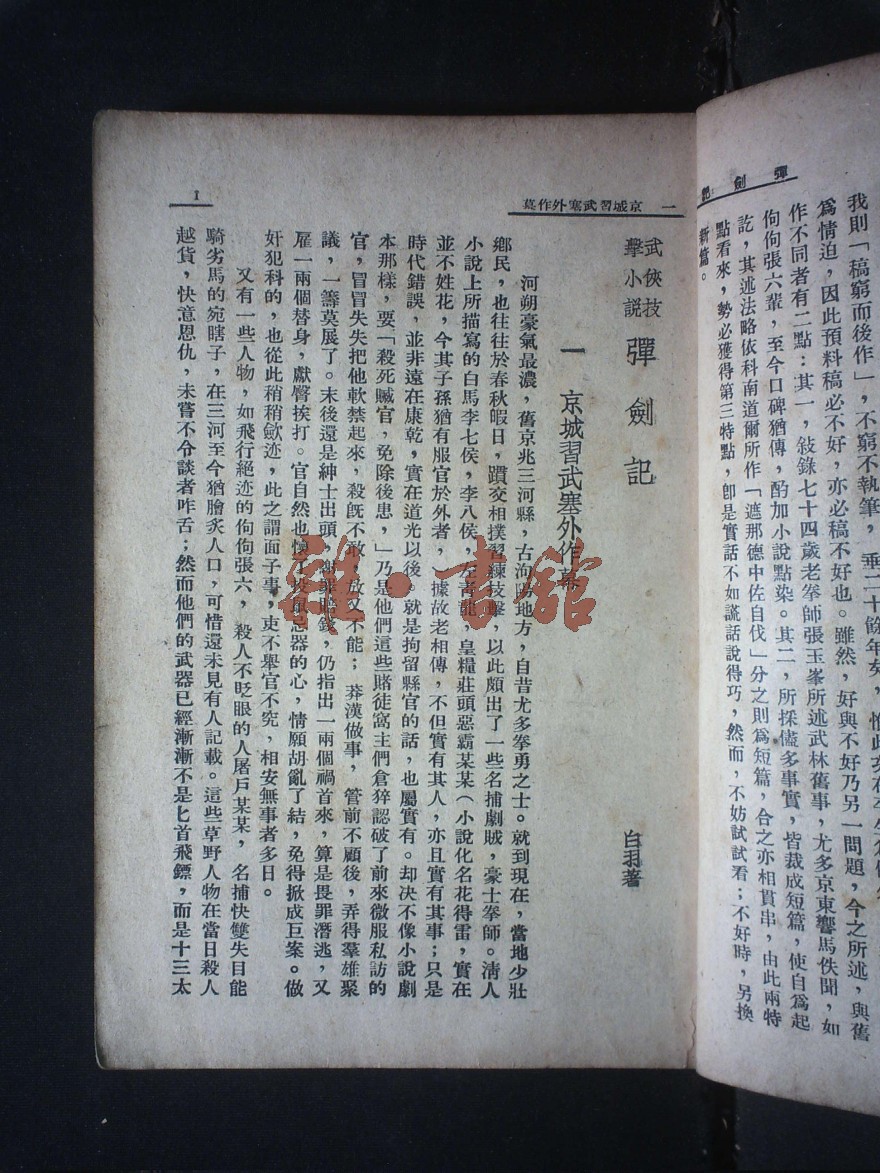 彈劍記
我則「稿窮而後作」，不窮不執筆，垂二十餘年矣，惟此
爲情迫，因此預料稿必不好，亦必稿不好也。雖然，好與不好乃另一問題，今之所述，與舊
作不同者有二點：其一，敍錄七十四歲老拳師張玉峯所述武林舊事，尤多京東響馬佚聞，如
佝佝張六輩，至今口碑猶傳，酌加小說點染。其二，所採儘多事實，皆裁成短篇，使自爲起
訖，其述法略依科南道爾所作「遮那德中佐自伐」分之則爲短篇，合之亦相貫串，由此兩特
點看來，勢必獲得第三特點，卽是實話不如謊話說得巧，然而，不妨試試看；不好時，另換
新篇。
一 京城習武塞外作幕
1
武俠技擊小說 彈劍記
白羽著
一 京城習武塞外作幕
河朔豪氣最濃，舊京兆三河縣，古泃陽地方，自昔尤多拳勇之士。就到現在，當地少壯
鄉民，也往往於春秋暇日，躓交相撲習練技擊，以此頗出了一些名捕劇賊，豪士拳師。淸人
小說上所描寫的白馬李七侯，李八侯，左靑龍，皇糧莊頭惡霸某某（小說化名花得雷，實在
並不姓花，今其子孫猶有服官於外者，）據故老相傳，不但實有其人，亦且實有其事；只是
時代錯誤，並非遠在康乾，實在道光以後。就是拘留縣官的話，也屬實有。却決不像小說劇
本那樣，要「殺死贓官，免除後患，」乃是他們這些賭徒窩主們倉猝認破了前來微服私訪的
官，冒冒失失把他軟禁起來，殺旣不敢，放又不能；莽漢做事，管前不顧後，弄得羣雄聚
議，一籌莫展了。末後還是紳士出頭，謝罪賠錢，仍指出一兩個禍首來，算是畏罪潛逃，又
雇一兩個替身，獻臀挨打。官自然也懷了投鼠忌器的心，情願胡亂了結，免得掀成巨案。做
奸犯科的，也從此稍稍歛迹，此之謂面子事，吏不舉官不究，相安無事者多日。
又有一些人物，如飛行絕迹的佝佝張六，殺人不眨眼的人屠戶某某，名捕快雙失目能
騎劣馬的宛瞎子，在三河至今猶膾炙人口，可惜還未見有人記載。這些草野人物在當日殺人
越貨，快意恩仇，未嘗不令談者咋舌；然而他們的武器已經漸漸不是匕首飛鏢，而是十三太
雜·書館